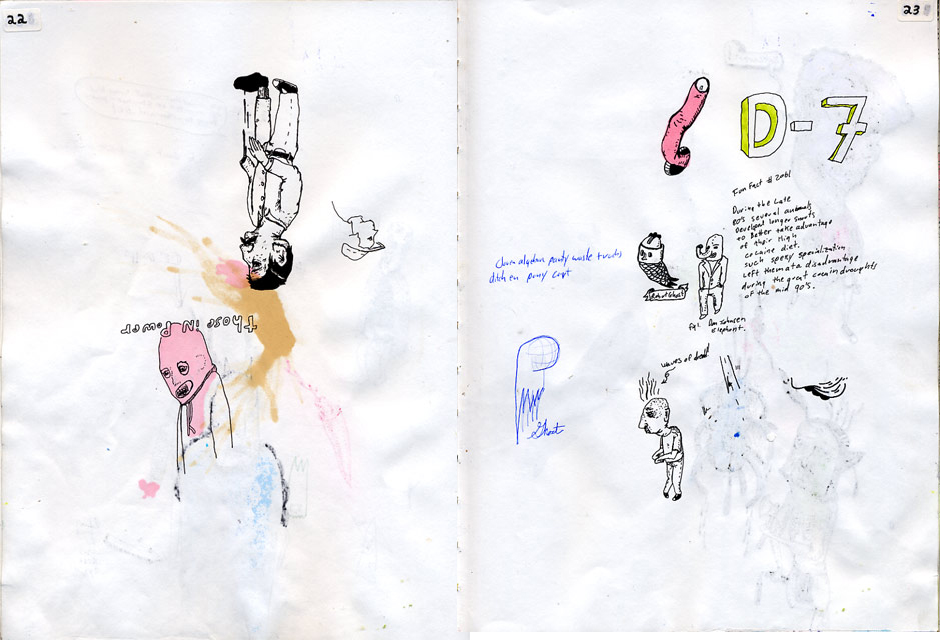 22
those IN Power
23
D-7
Fun Fact # 2061
During the Late
80's several animals
Developed longer snouts
to Better take advantage
of their High
cocaine diet.
such speey specialization
Left them at a disadvantage
during the great cocain droughts
of the mid 90's.
Robot Ghost
Fg1. Don Johnson
Elephant.
waves of dread
ditch en pony
Ghost